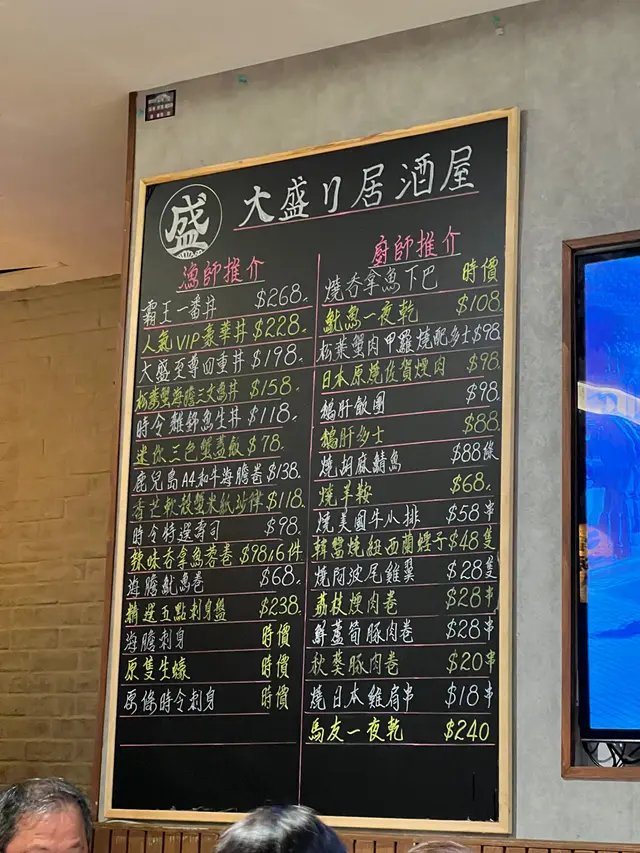 盛
大盛り居酒屋
漁師推介
霸王一番丼 $268.
人氣VIP豪華丼 $228.
大盛至尊四重丼 $198.
松葉蟹海膽三文魚丼 $158.
時令雜錦魚生丼 $118.
迷你三色蟹蓋飯 $78.
鹿兒島A4和牛海膽卷 $138.
香芒軟殼蟹米紙沙律 $118.
時令特選壽司 $98.
辣味吞拿魚蓉卷 $98/6件
海膽魷魚卷 $68.
精選五點刺身盤 $238.
海膽刺身 時價
原隻生蠔 時價
原條時令刺身 時價
廚師推介
燒吞拿魚下巴 時價
魷魚一夜乾 $108.
松葉蟹肉甲羅燒配多士 $98.
日本原燒佐賀煙肉 $98.
鵝肝飯團 $98.
鵝肝多士 $88.
燒胡麻鯖魚 $88條
燒羊鞍 $68.
燒美國牛小排 $58串
韓醬燒紐西蘭蟶子 $48隻
燒阿波尾雞翼 $28隻
荔枝煙肉卷 $28串
鮮蘆筍豚肉卷 $28串
秋葵豚肉卷 $20串
燒日本雞肩串 $18串
馬友一夜乾 $240